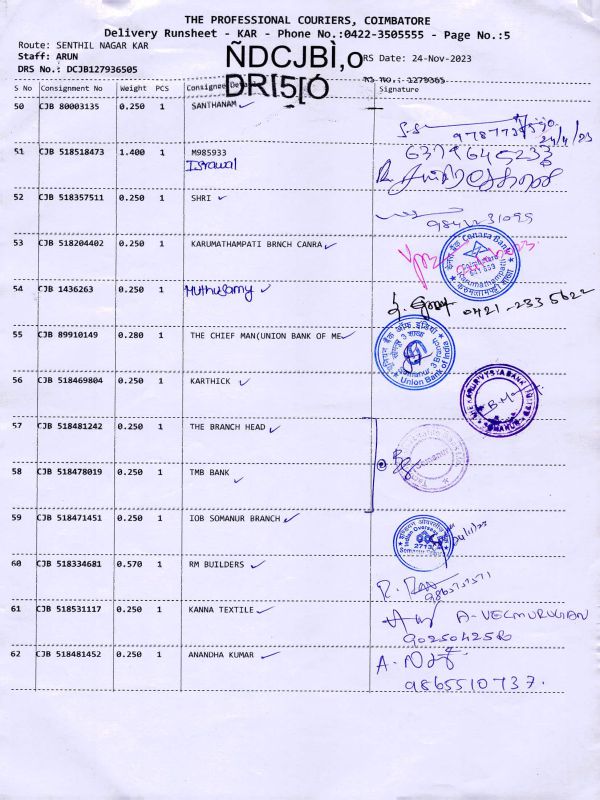 THE PROFESSIONAL COURIERS, COIMBATORE
Delivery Runsheet - KAR - Phone No.:0422-3505555 - Page No.:5
Route: SENTHIL NAGAR KAR
Staff: ARUN
DRS No.: DCJB127936505
ÑDCJBÌ,o
DRÍ5[Ó
DRS Date: 24-Nov-2023
RS No.: 1279365
S No Consignment No Weight PCS Consignee Details Signature
50 CJB 80003135 0.250 1 SANTHANAM
51 CJB 518518473 1.400 1 M985933
Israwal
6379645233
52 CJB 518357511 0.250 1 SHRI
9842231095
53 CJB 518204402 0.250 1 KARUMATHAMPATI BRNCH CANRA
Canara Bank
54 CJB 1436263 0.250 1 Muthusamy
0421-2335622
55 CJB 89910149 0.280 1 THE CHIEF MAN(UNION BANK OF ME
Somanur Branch
Union Bank of India
56 CJB 518469804 0.250 1 KARTHICK
57 CJB 518481242 0.250 1 THE BRANCH HEAD
58 CJB 518478019 0.250 1 TMB BANK
Somanur
59 CJB 518471451 0.250 1 IOB SOMANUR BRANCH
Indian Overseas
2713
60 CJB 518334681 0.570 1 RM BUILDERS
61 CJB 518531117 0.250 1 KANNA TEXTILE
A-VELMURUGAN
62 CJB 518481452 0.250 1 ANANDHA KUMAR
9865510737.